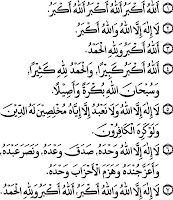 ١ اَللهُ أَكْبَرُ اَللهُ أَكْبَرُ اَللهُ أَكْبَرُ.
٢ لَا إِلٰهَ إِلَّا اللهُ وَاللهُ أَكْبَرُ.
٣ اَللهُ أَكْبَرُ وَلِلّٰهِ الْحَمْدُ.
٤ اَللهُ أَكْبَرُ كَبِيْرًا، وَالْحَمْدُ لِلّٰهِ كَثِيْرًا،
وَسُبْحَانَ اللهِ بُكْرَةً وَأَصِيْلًا.
٥ لَا إِلٰهَ إِلَّا اللهُ وَلَا نَعْبُدُ إِلَّا إِيَّاهُ مُخْلِصِيْنَ لَهُ الدِّيْنَ
وَلَوْ كَرِهَ الْكَافِرُوْنَ.
٦ لَا إِلٰهَ إِلَّا اللهُ وَحْدَهُ، صَدَقَ وَعْدَهُ، وَنَصَرَ عَبْدَهُ،
وَأَعَزَّ جُنْدَهُ وَهَزَمَ الْأَحْزَابَ وَحْدَهُ.
٧ لَا إِلٰهَ إِلَّا اللهُ وَاللهُ أَكْبَرُ، اَللهُ أَكْبَرُ وَلِلّٰهِ الْحَمْدُ.